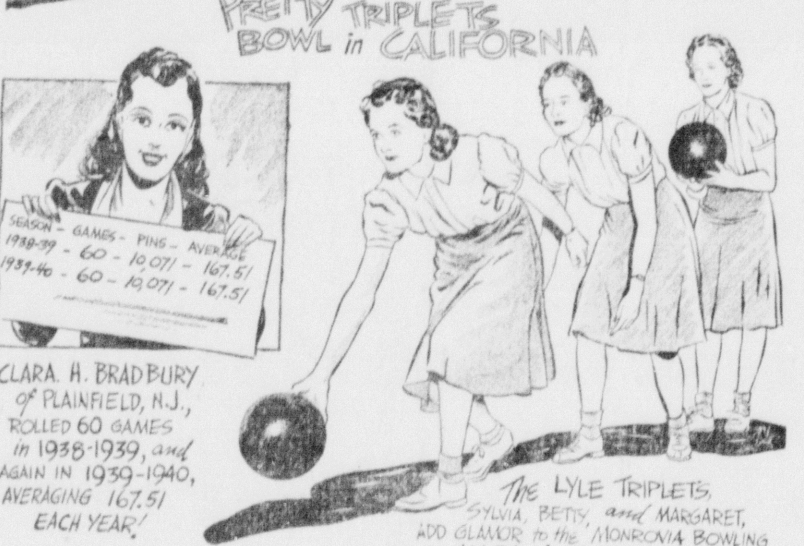 PRETTY TRIPLETS
BOWL in CALIFORNIA
SEASON - GAMES - PINS - AVERAGE
1938-39 - 60 - 10,071 - 167.51
1939-40 - 60 - 10,071 - 167.51
CLARA. H. BRADBURY
of PLAINFIELD, N.J.,
ROLLED 60 GAMES
in 1938-1939, and
AGAIN IN 1939-1940,
AVERAGING 167.51
EACH YEAR!
The LYLE TRIPLETS,
SYLVIA, BETTY, and MARGARET,
ADD GLAMOR to the MONROVIA BOWLING